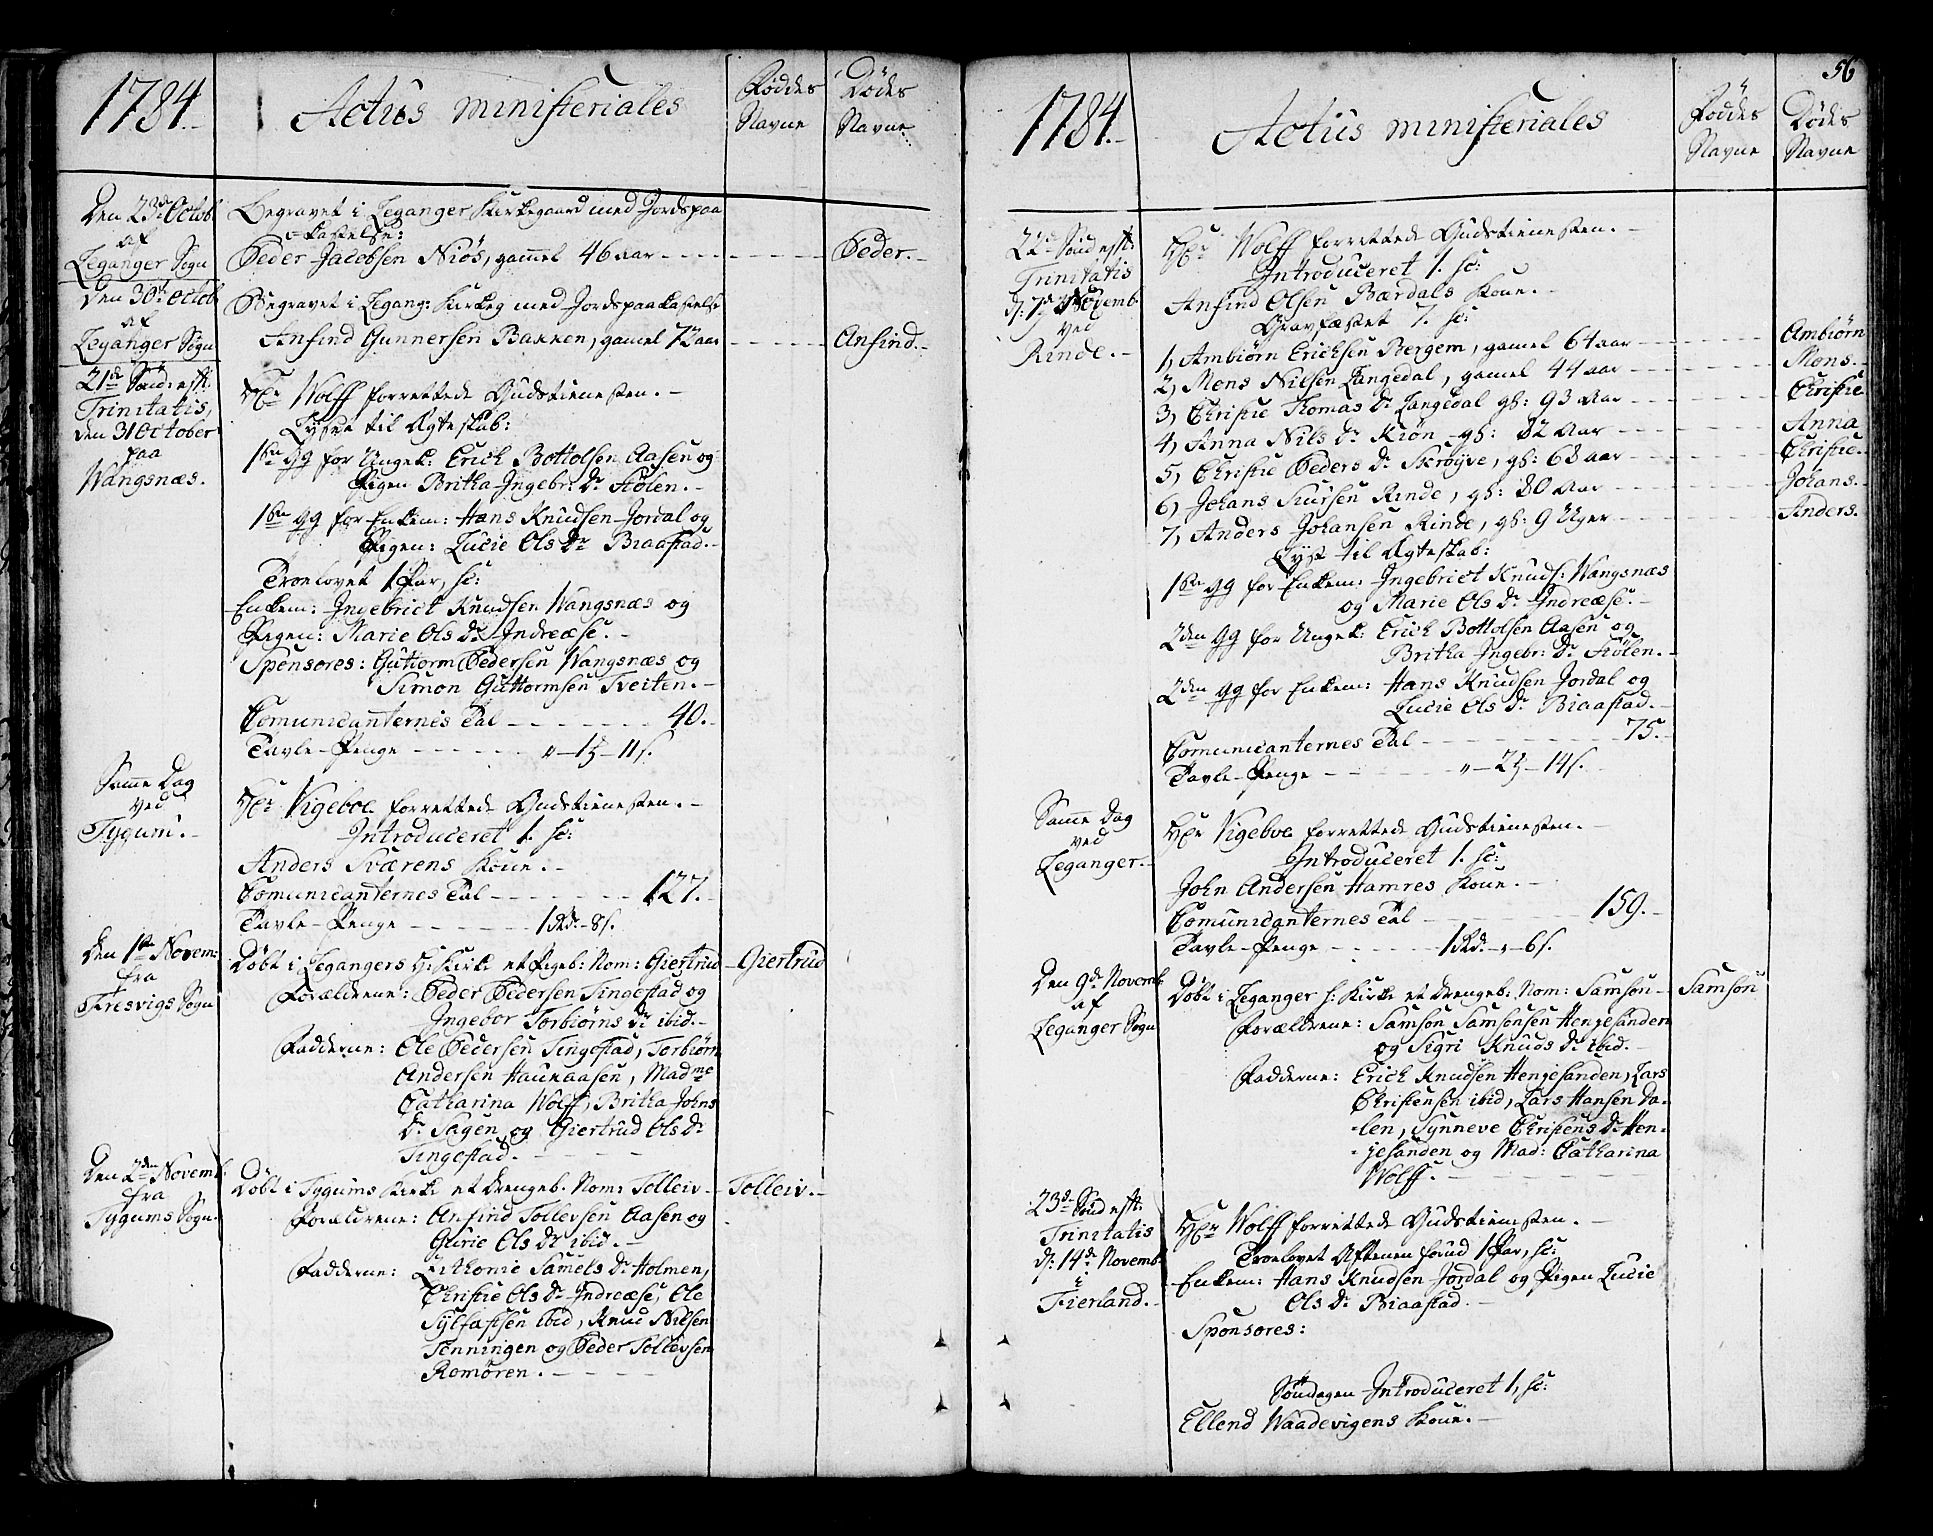 1784.
Actus ministeriales
Føddes Navne
Dødes Navne
Den 23de Octobr
af
Leganger Sogn
Begravet i Leganger Kirkegaard med Jordspaa-
kastelse:
Peder Jacobsen Niøs, gammel 46 aar
Peder.
Den 30te Octob
af
Leganger Sogn
Begravet i Legang: Kirkeg med Jordspaakastelse
Anfind Gunnersen Bakken, gamel 72 aar
Anfind.
21de Sønd: eft:
Trinitatis,
den 31 October
paa
Wangsnæs.
Hr Wolff forrettede Gudstienesten.
Lyset til Ægteskab:
1ste gg for Ungek: Erich Bottolsen Aasen og
Pigen Britha Ingebr: Dr Stølen.
1ste gg for Enkem: Hans Knudsen Jordal og
Pigen: Lucie Ols Dr Biaastad.
Troelovet 1 Par, sc:
Enkem: Ingebrict Knudsen Wangsnæs og
Pigen: Marie Ols Dr Indreæse.
Sponsores: Guttorm Pedersen Wangsnæs og
Simon Guttormsen Tveiten.
Comunicanternes Tal 40.
Tavle-Penge " - 1 ꝫ - 11 s.
Samme Dag
ved
Tygum.
Hr Vigeboe forrettede Gudstienesten.
Introduceret 1. sc:
Anders Sværens Kone.
Comunicanternes Tal 127.
Tavle-Penge 1 Rd. - 8 s.
Den 1ste Novem:
fra
Fresvigs Sogn
Døbt i Legangers H: Kirke et Pigeb: Nom: Giertrud
Giertrud
Forældrene: Peder Pedersen Tingestad og
Ingebor Torbiørns Dr ibid.
Fadderne: Ole Pedersen Tingestad, Torbiørn
Andersen Haukaasen, Madme
Catharina Wolff, Britha Johns
Dr Sagen og Giertrud Ols Dr
Tingestad.
Den 2den Novemb.
fra
Tygums Sogn.
Døbt i Tygums Kirke et Drengeb. Nom: Tolleiv
Tolleiv.
Forældrene: Anfind Tollevsen Aasen og
Gurie Ols Dr ibid.
Fadderne: Lithonie Samels Dr Holmen,
Christie Ols Dr Indreæse, Ole
Sylfastsen ibid, Knud Nilsen
Tenningen og Peder Tollevsen
Romøren.
56
1784.
Actus ministeriales
Føddes Navne
Dødes Navne
22de Sønd eft:
Trinitatis
d: 7de Novemb.
ved
Rinde.
Hr Wolff forrettede Gudstienesten.
Introduceret 1. sc:
Anfind Olsen Bærdals Kone.
Gravfæstet 7. sc:
1, Ambiørn Ericksen Bergem, gamel 64 aar
Ambiørn
2, Mons Nilsen Langedal, gamel 44 aar
Mons.
3, Christie Thomas Dr Langedal gl: 93 Aar
Christie
4, Anna Nils Dr Kiøn gl: 82 Aar
Anna
5, Christie Peders Dr Skrøyve, gl: 68 aar
Christie.
6, Johans Siursen Rinde, gl: 80 Aar
Johans.
7, Anders Johansen Rinde, gl: 9 Uger
Anders.
Lyst til Ægteskab:
1ste gg for Enkem: Ingebrict Knuds: Wangsnæs
og Marie Ols Dr Indreæse.
2den gg for Ungek: Erich Bottolsen Aasen og
Britha Ingebr: Dr Stølen.
2den gg for Enkem: Hans Knudsen Jordal og
Lucie Ols Dr Biaastad.
Comunicanternes Tal 75.
Tavle-Penge " - 2 ꝫ - 14 s.
Samme Dag
ved
Leganger.
Hr Vigeboe forrettede Gudstienesten.
Introduceret 1. sc:
John Andersen Hamres Kone.
Comunicanternes Tal 159.
Tavle-Penge 1 Rd. " 6 s.
Den 9de Novemb
af
Leganger Sogn
Døbt i Leganger h: Kirke et Drengeb: Nom: Samson
Samson
Forældrene: Samson Samsonsen Hengesanden
og Sigri Knuds Dr ibid.
Fadderne: Erich Knudsen Hengesanden, Lars
Christensen ibid, Lars Hansen Da-
len, Synneve Christens Dr Hen-
gesanden og Mad: Catharina
Wolff.
23de Sønd eft:
Trinitatis
d: 14de Novemb.
i
Fierland.
Hr Wolff forrettede Gudstienesten.
Troelovet Aftenen forud 1 Par, sc:
Enkem: Hans Knudsen Jordal og Pigen Lucie
Ols Dr Biaastad.
Sponsores:
Søndagen Introduceret 1, sc:
Ellend Waadevigens Kone.